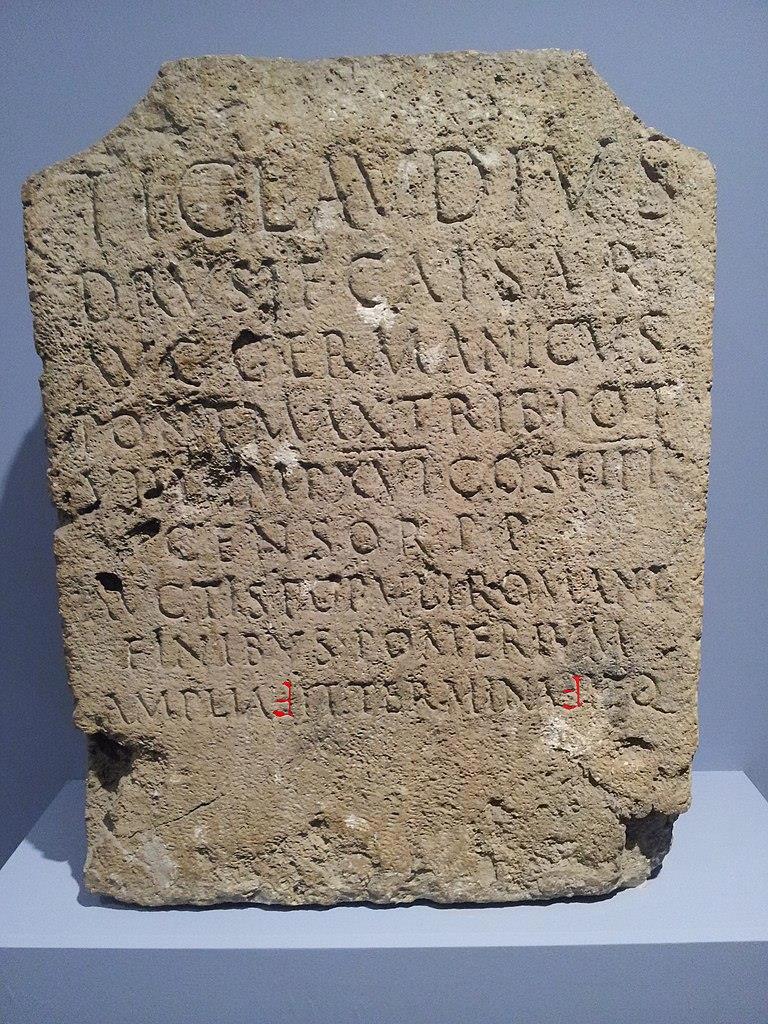 TI CLAVDIVS
DRVSI F CAISAR
AVG GERMANICVS
PONT MAX TRIB POT
VIII IMP XVI COS IIII
CENSOR P P
AVCTIS POPVLI ROMANI
FINIBVS POMERIVM
AMPLIAℲIT TERMINAℲITQ